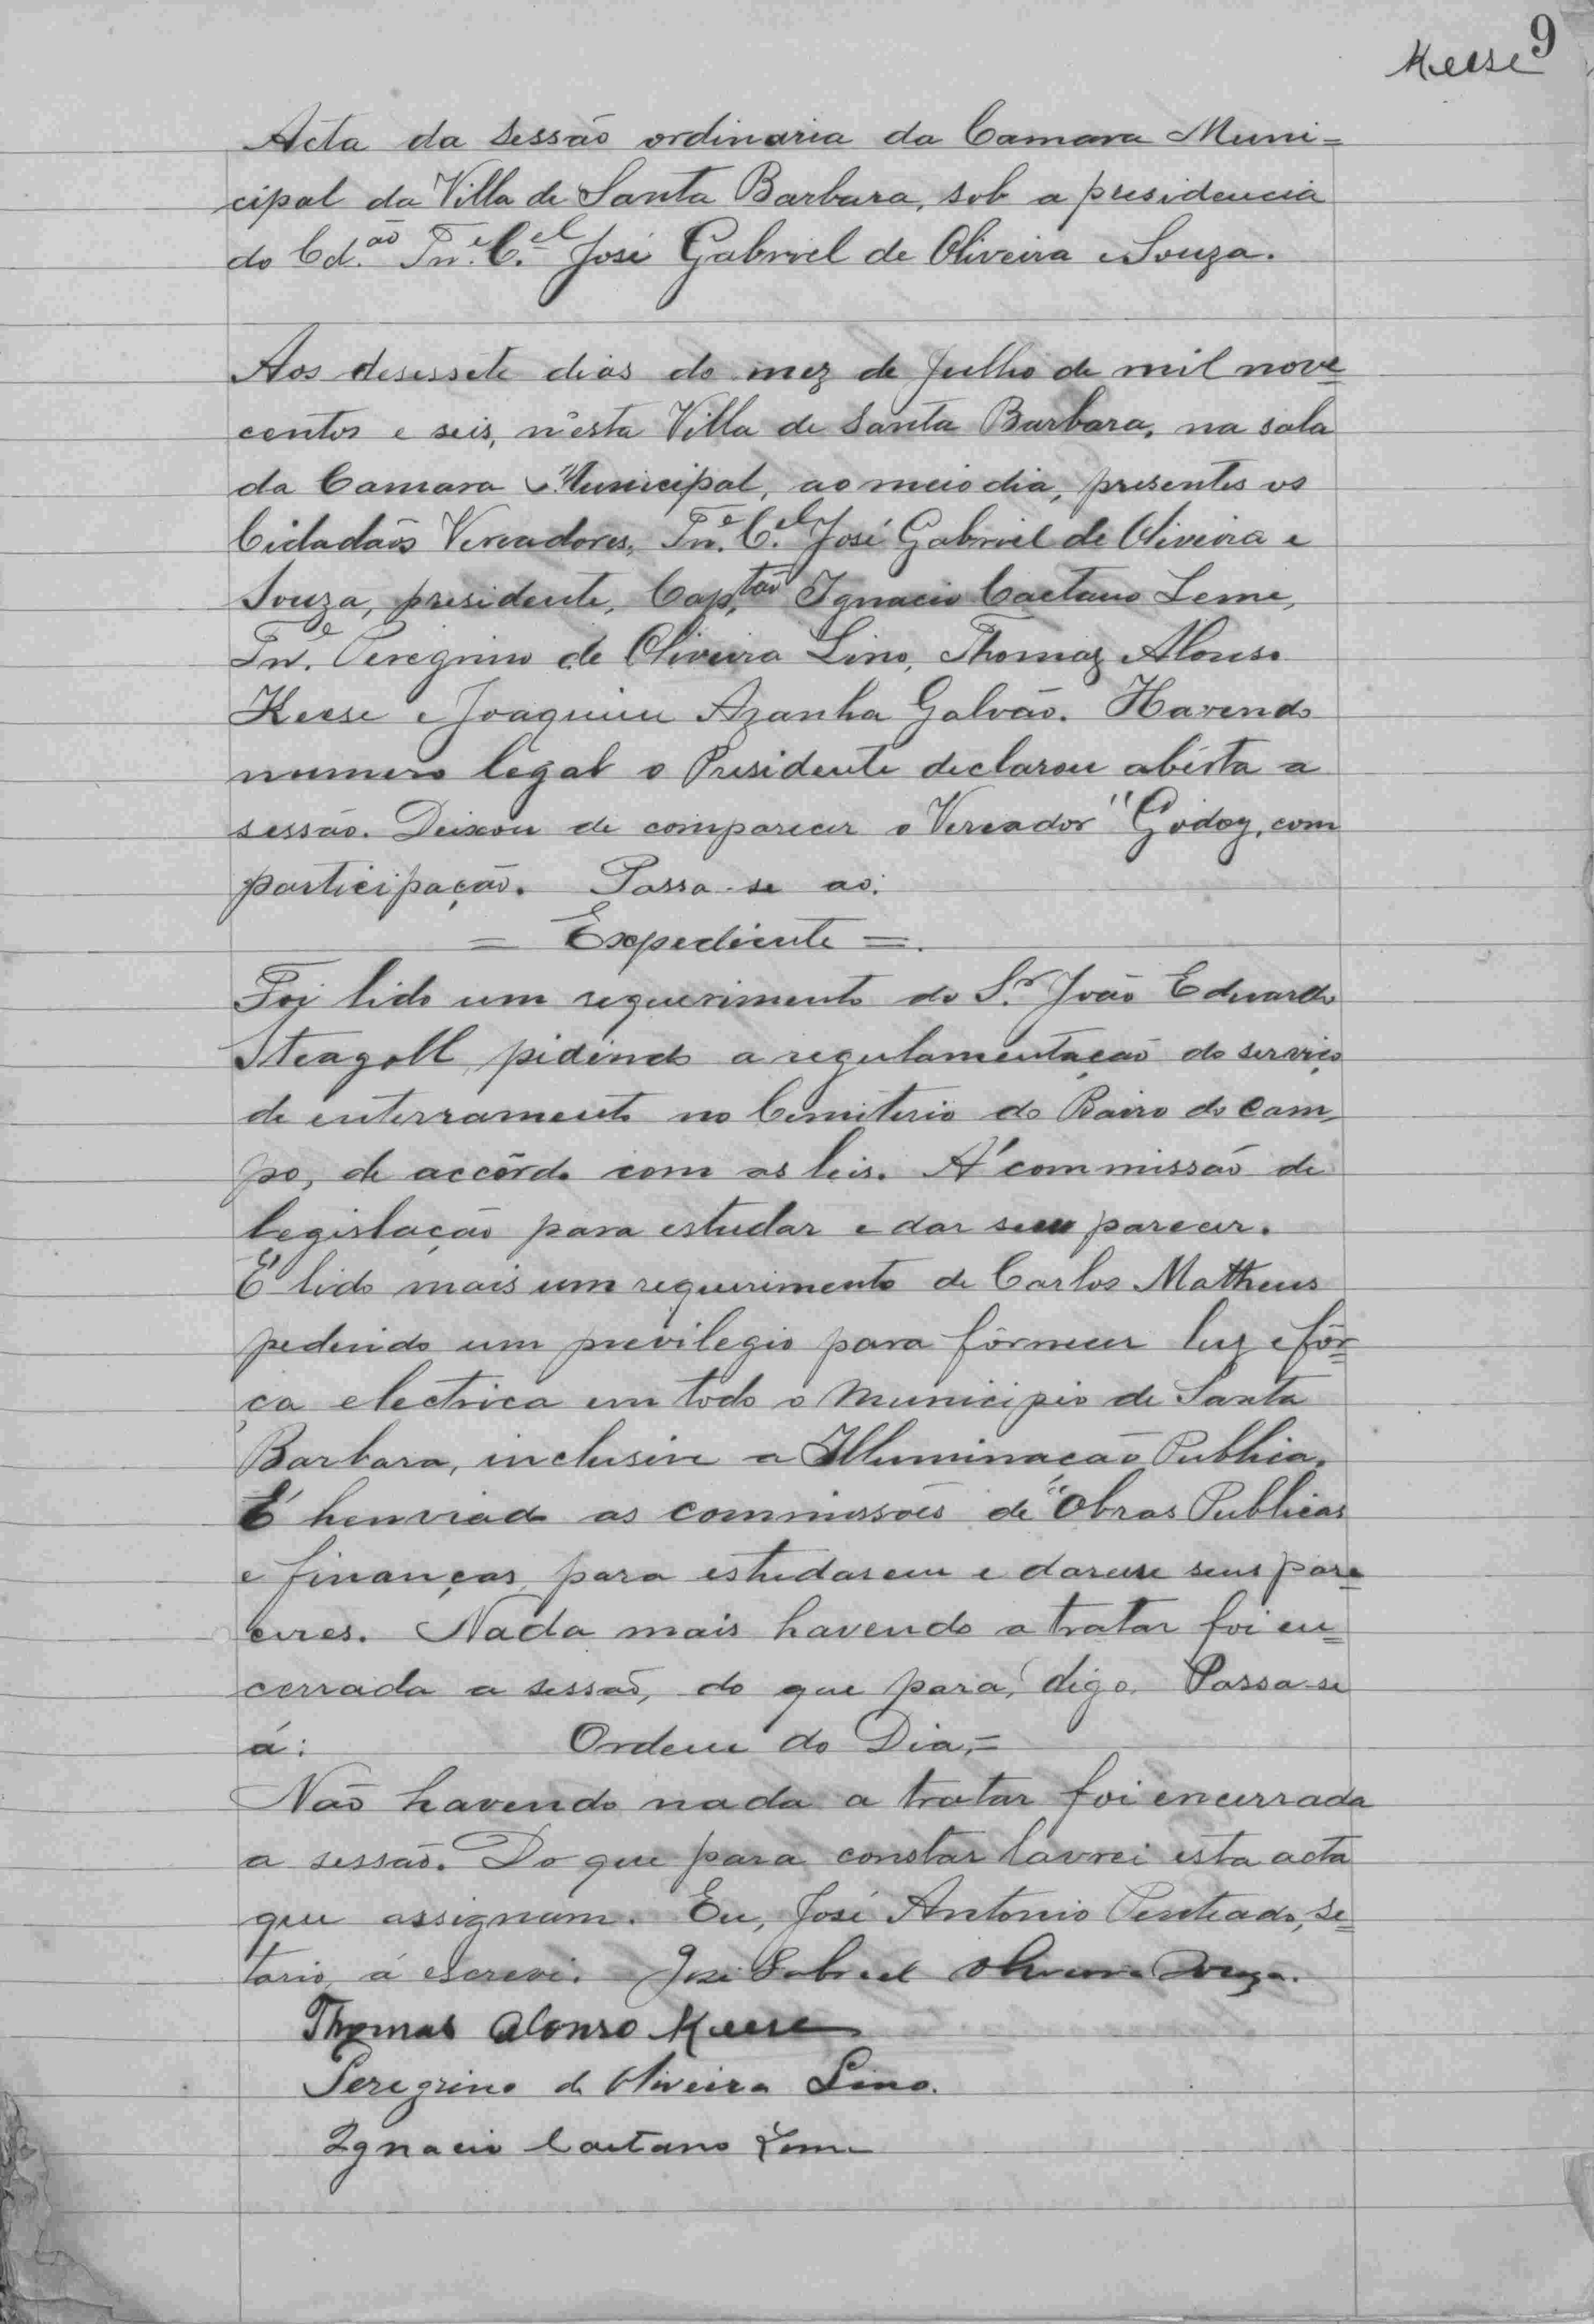 9
Keese
Acta da sessão ordinaria da Camara Muni=
cipal da Villa de Santa Barbara, sob a presidencia
do Cd.ão Tn.e C.el José Gabriel de Oliveira e Souza.
Aos desessete dias do mez de Julho de mil nove=
centos e seis, n'esta Villa de Santa Barbara, na sala
da Camara Municipal, ao meio dia, presentes os
Cidadãos Vereadores, Tn.e C.el José Gabriel de Oliveira e
Souza, presidente, Cap.tão Ignacio Caetano Leme,
Tn.e Peregrino de Oliveira Lino, Thomaz Alonso
Keese e Joaquim Azanha Galvão. Havendo
numero legal o Presidente declarou abérta a
sessão. Deixou de comparecer o Vereador "Godoy, com
participação. Passa-se ao:
= Expediente =.
Foi lido um requerimento do S.r João Eduardo
Steagall, pidindo a regulamentação do serviço
de enterramento no Cemiterio do Bairo do Cam-
po, de accôrdo com as leis. A' commissão de
legislação para estudar e dar seu parecer.
É lido mais um requerimento de Carlos Mattheus
pedindo um previlegio para fôrnecer luz e fôr=
ça electrica em todo o Municipio de Santa
Barbara, inclusive a Illuminação Publica.
É henviado as commissões de "Obras Publicas
e finanças, para estudarem e darem seus pare=
ceres. Nada mais havendo a tratar foi en=
cerrada a sessão, do que para, digo. Passa-se
á: Ordem do Dia,=
Não havendo nada a tratar foi encerrada
a sessão. Do que para constar lavrei esta acta
que assignam. Eu, José Antonio Penteado, se=
tario, á escrevi. José Gabriel Oliveira Souza.
Thomas Alonso Keese
Peregrino de Oliveira Lino.
Ignacio Caetano Leme